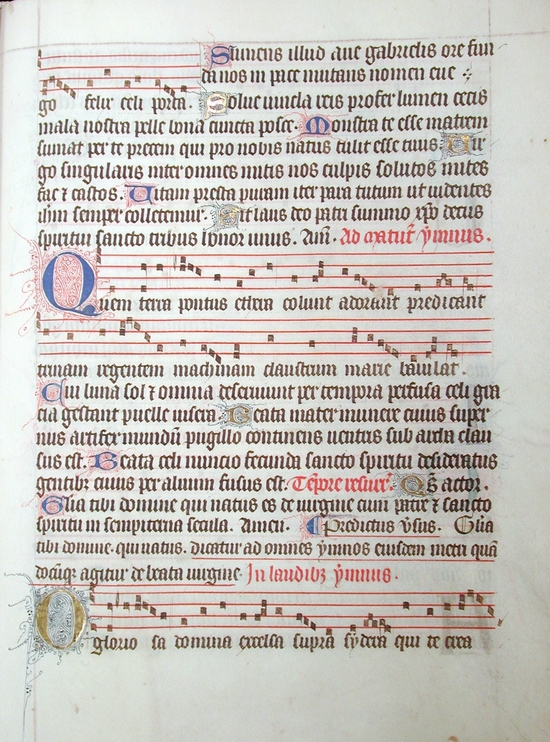 Sumens illud aue gabrielis ore fun
da nos in pace mutans nomen eue
go felix celi porta. Solue uincla reis profer lumen cecis
mala nostra pelle bona cuncta posce. Monstra te esse matrem
sumat per te precem qui pro nobis natus tulit esse tuus. Uir
go singularis inter omnes mitis nos culpis solutos mites
fac & castos. Uitam presta puram iter para tutum ut uidentes
ihm semper colletemur. Sit laus deo patri summo xpo decus
spiritui sancto tribus honor unus. Am. Ad matut ymnus.
Quem terra pontus ethera colunt adorant predicant
trinam regentem machinam claustrum marie baiulat.
Cui luna sol & omnia deseruiunt per tempora perfusa celi gra
cia gestant puelle uiscera. Beata mater munere cuius super
nus artifex mundu pugillo continens uentris sub archa clau
sus est. Beata celi nuncio fecunda sancto spiritu desideratus
gentibz cuius per aluum fusus est. Tpore resurr. Qs actor.
Glia tibi domine qui natus es de uirgine cum patre & sancto
spiritu in sempiterna secula. Amen. Predictus vsus. Glia
tibi domine. qui natus. dicatur ad omnes ymnos eiusdem metri qua
docuqz agitur de beata uirgine. In laudibz ymnus.
O glorio sa domina excelsa supra sydera qui te crea